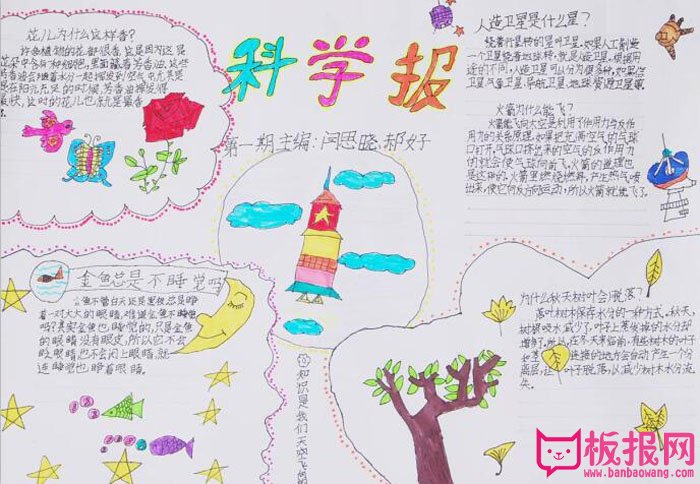 科学报
第一期主编:闫思晓.郝好
花儿为什么这样香?
许多植物的花都很香,这是因为这是
花中含有一种细胞,里面藏着芳香油,这些
芳香油会随着水分一起挥发到空气中尤其是
在阳光充足的时候,芳香油挥发得
最快,这时的花儿也就尤显最香
人造卫星是什么星?
绕着行星转的星叫卫星.如果人工制造
一个卫星绕着地球转,就是人造卫星.根据用
途的不同,人造卫星可以分为很多种,如果侦
卫星气象卫星.导航卫星.地球资源卫星等
火箭为什么能飞?
火箭能飞向太空是利用了作用力与反作
用力的关系原理.如果把充满空气的气球
口打开,气球口挤出来的空气的反作用力
们就会使气球向前飞.火箭的道理也
是这样的,火箭里燃烧燃料,产生热气喷
出来,使它向反方向运动,所以火箭就能飞了.
金鱼总是不睡觉吗
金鱼不管白天还是黑夜,总是睁
着一对大大的眼睛,难道金鱼不睡觉
吗?其实金鱼也睡觉的,只是金鱼
的眼睛没有眼皮,所以它不会
眨眼睛也不会闭上眼睛,就
连睡觉也睁着眼睛.
为什么秋天树叶会脱落?
落叶树木保存水分的一种方式.秋天,
树根吸水减少了,叶子上蒸发掉的水分式
增加了.所以,在冬天来临前,有些树木的叶子
也茎连接的地方会自动产生一个
离层,让叶子脱落,以减少树木水分流
失.
知识是我们天空飞向的
板报网
www.banbaowang.com